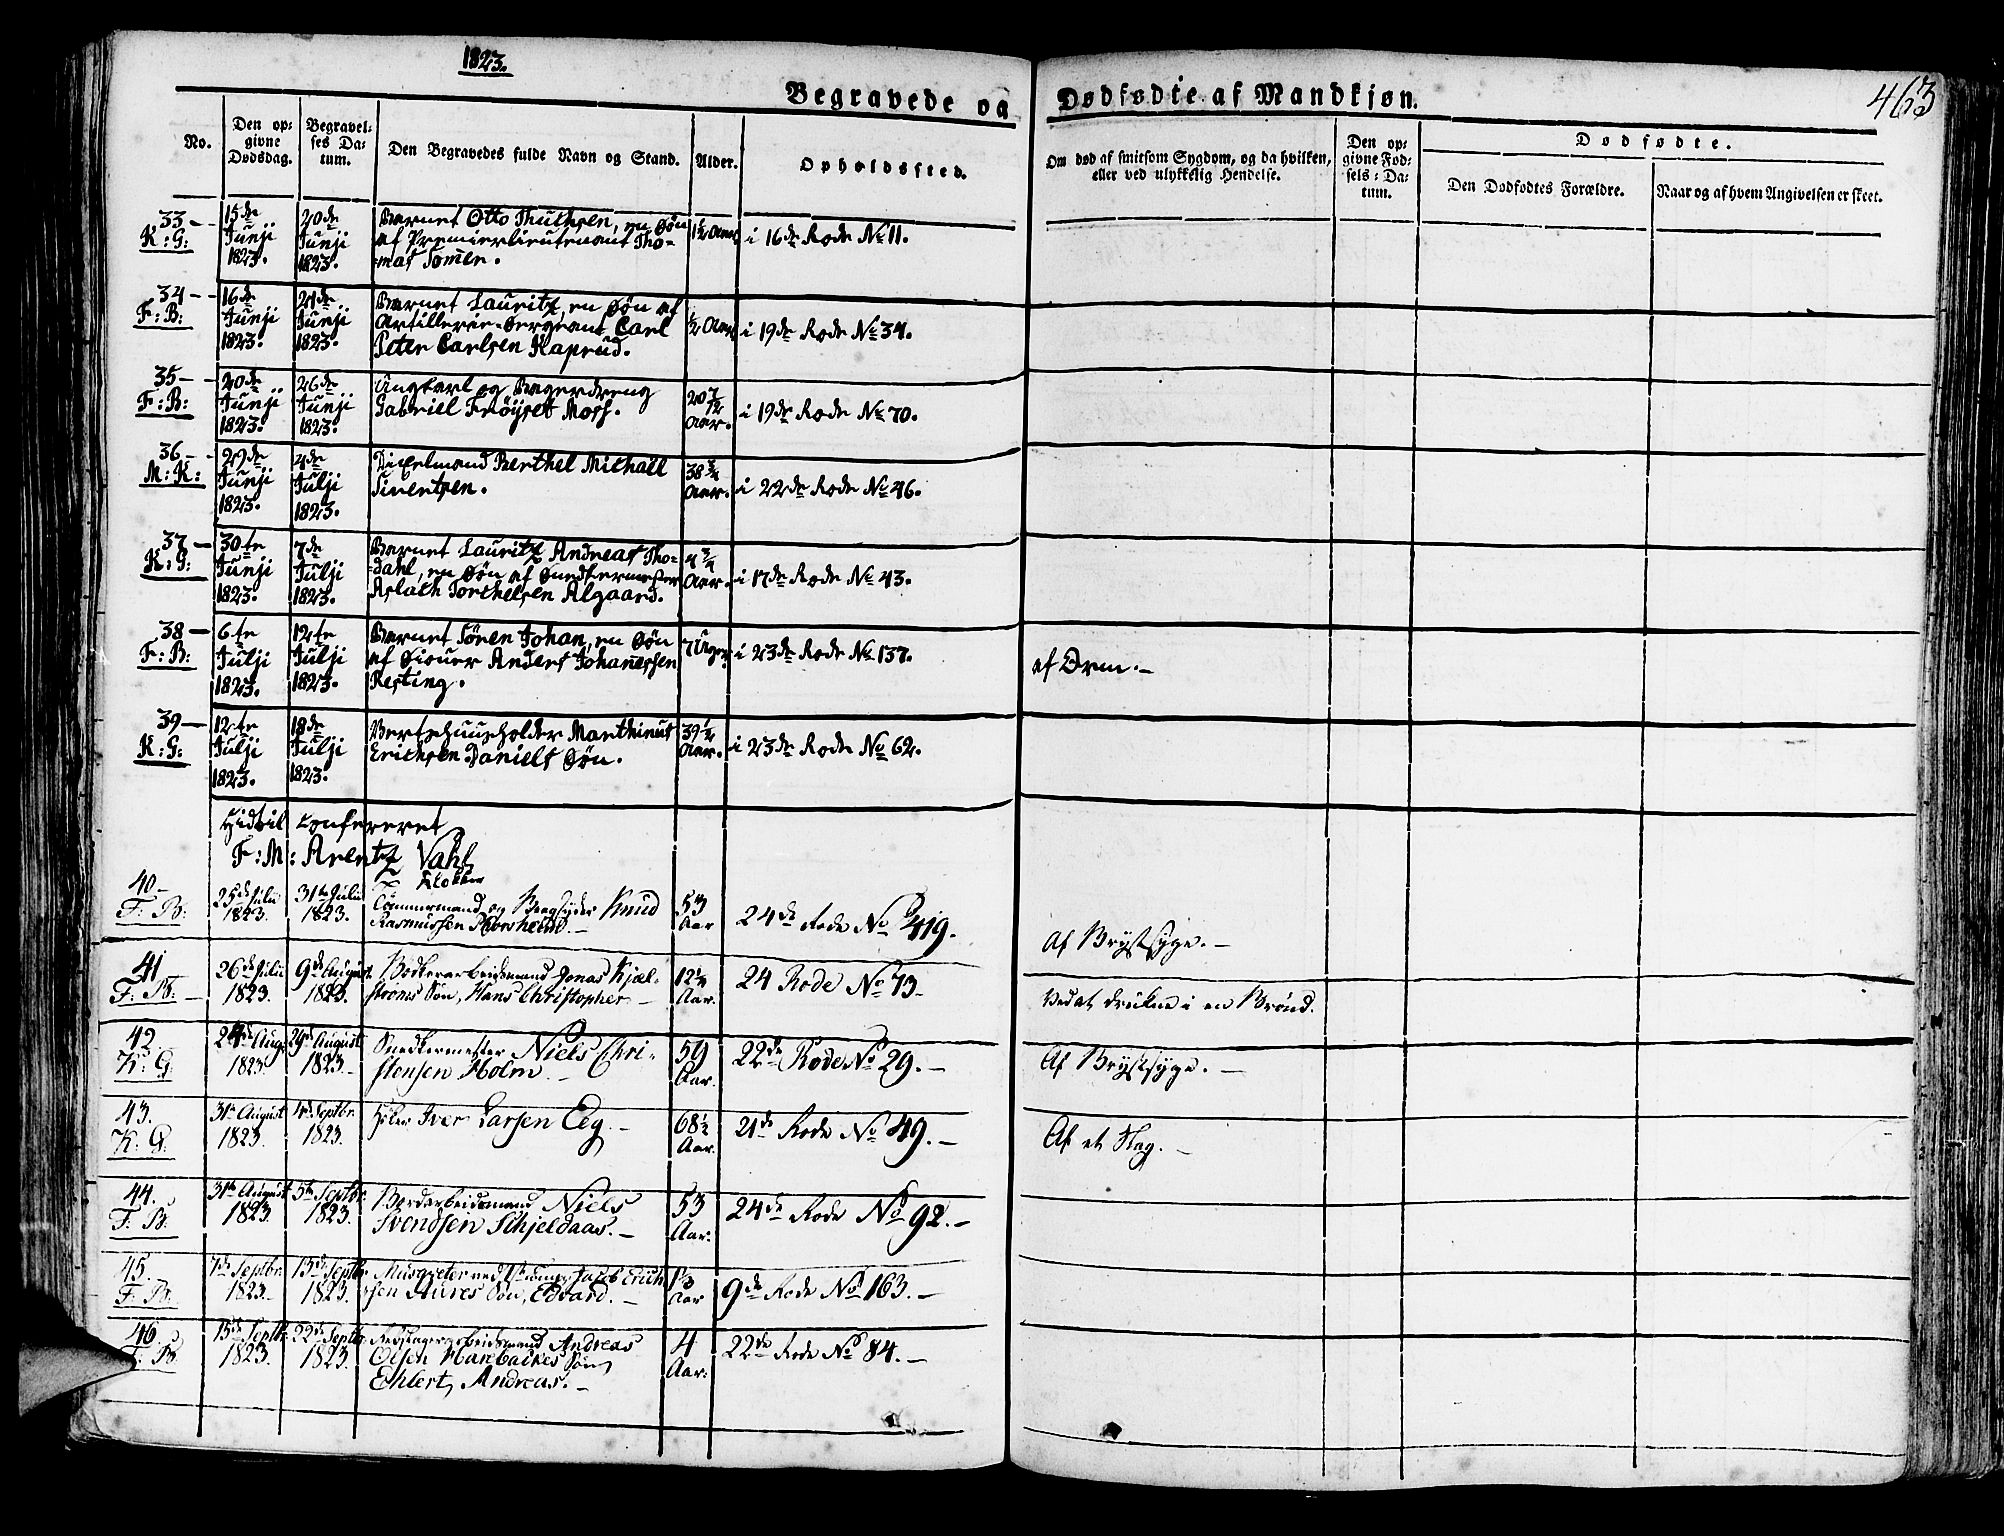 1823.
463
Begravede og Dødfødte af Mandkjøn.
No.
Den opgivne Dødsdag.
Begravelses Datum.
Den Begravedes fulde Navn og Stand.
Alder.
Opholdssted.
Om død af smitsom Sygdom, og da hvilken, eller ved ulykkelig Hendelse.
Den opgivne Fødsels-Datum.
Dødfødte.
Den Dødfødtes Forældre.
Naar og af hvem Angivelsen er skeet.
33 – K: G:
15de Junji 1823.
20de Junji 1823.
Barnet Otto Thuchsen, en Søn
af Premierlieutenant Tho-
mas Tomer.
1½ Aar
i 16de Rode No 11.
34 – F: B:
16de Junji 1823.
21de Junji 1823.
Barnet Lauritz, en Søn af
Artillerie-Sergeant Carl
Peter Carlsen Kaprud.
½ Aar
i 19de Rode No 34.
35 – F: B:
20de Junji 1823.
26de Junji 1823.
Ungkarl og Bagerdreng
Gabriel Frøyset Moss.
20 7/12 Aar.
i 19de Rode No 70.
36 – M: K:
29de Junji 1823.
4de Julji 1823.
Berthel Michaël
Sivertsen.
38 ¾ Aar.
i 22de Rode No 46.
37 – K: G:
30te Junji 1823.
7de Julji 1823.
Barnet Lauritz Andreas Tho-
dahl, en Søn af Snedkermester
Aslach Torchelsen Algaard.
4 ¾ Aar.
i 17de Rode No 43.
38 – F: B:
6te Julji 1823.
12te Julji 1823.
Barnet Sören Johan, en Søn
af Sjouer Anders Johanessen
Resting.
7 Uger
i 23de Rode No 137.
af Orm. –
39 – K: G:
12te Julji 1823.
18de Julji 1823.
Vertshuusholder Marthinus
Erichsen Daniels Søn.
39 ½ Aar.
i 23de Rode No 62.
Hidtil Confereret
F: M: Arentz Vahl
Klokker
40 – F: B:
25de Julii 1823.
31te Julii 1823.
Tømmermand og Knud
Rasmussen Thorsheim. –
53 Aar
24de Rode No 419.
Af Brystsyge. –
41 F: B: –
26de Julii 1823
9de August. 1823.
Bødkerarbeidsmand Jonas Kjæl-
strøms Søn, Hans Christopher –
12½ Aar.
24 Rode No 73 –
Ved at drukne i en Brønd.
42. K: G:
24de Aug. 1823.
29de August 1823. –
Snedkermester Niels Chri-
stensen Holm. –
59 Aar.
22de Rode No 29. –
Af Brystsyge. –
43. K: G:
31te August 1823.
4de Septbr. 1823.
Iver Larsen Eeg. –
68½ Aar.
21de Rode No 49. –
Af et Slag. –
44. F: B:
31te August 1823.
5te Septbr. 1823.
Borderarbeidsmand Niels
Svendsen Schjeldaas. –
53 Aar.
24de Rode No 92. –
45. F: B:
7de Septbr. 1823. –
13de Septbr. 1823.
Musqveter ved Jacob Erich-
sen Aures Søn, Edvard. –
Aar
9de Rode No 163. –
46 F: B.
15de Septbr. 1823.
22de Septbr. 1823.
Andreas
Olsen Harebackes Søn
Ehlert, Andreas. –
4 Aar:
22de Rode No 84. –